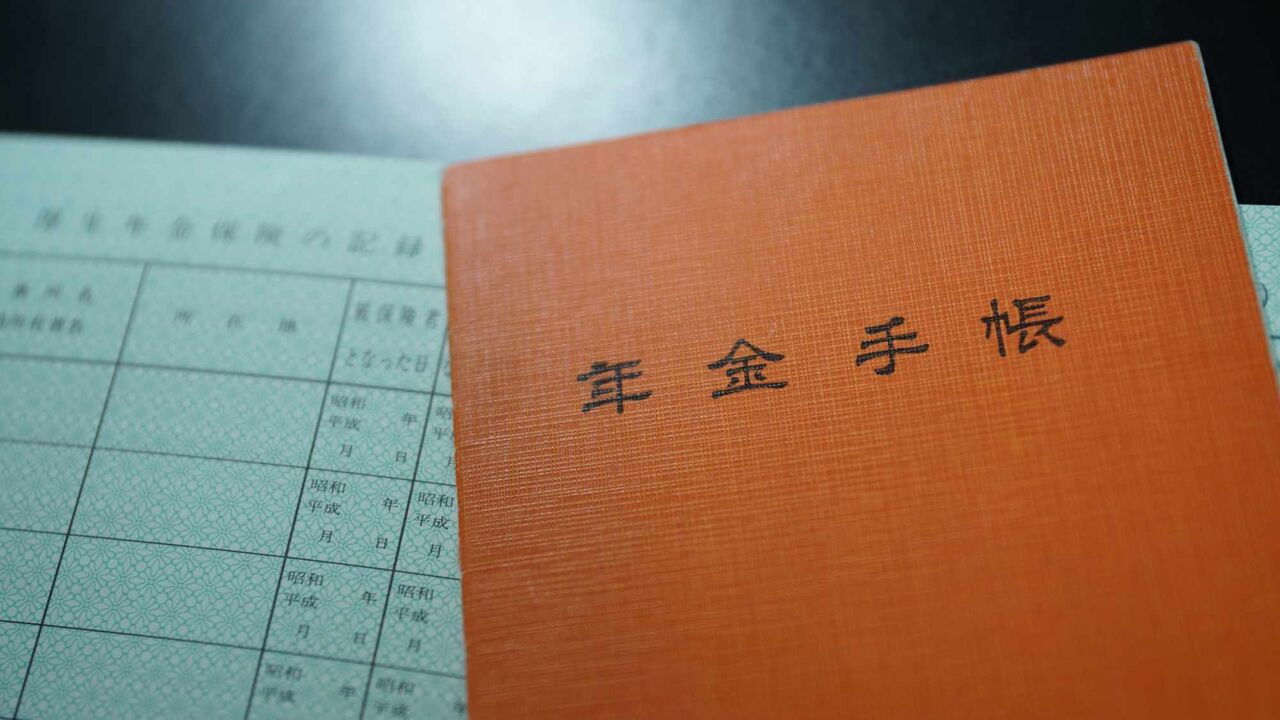 厚生年金保険の記録
所在地
被保険者
となった日
昭和 年
平成
月 日
昭和 年
平成
月 日
昭和
平成
月
昭和 年
平成
月 日
昭和
平成
月
昭和 年
平成
昭和 年
平成
年金手帳